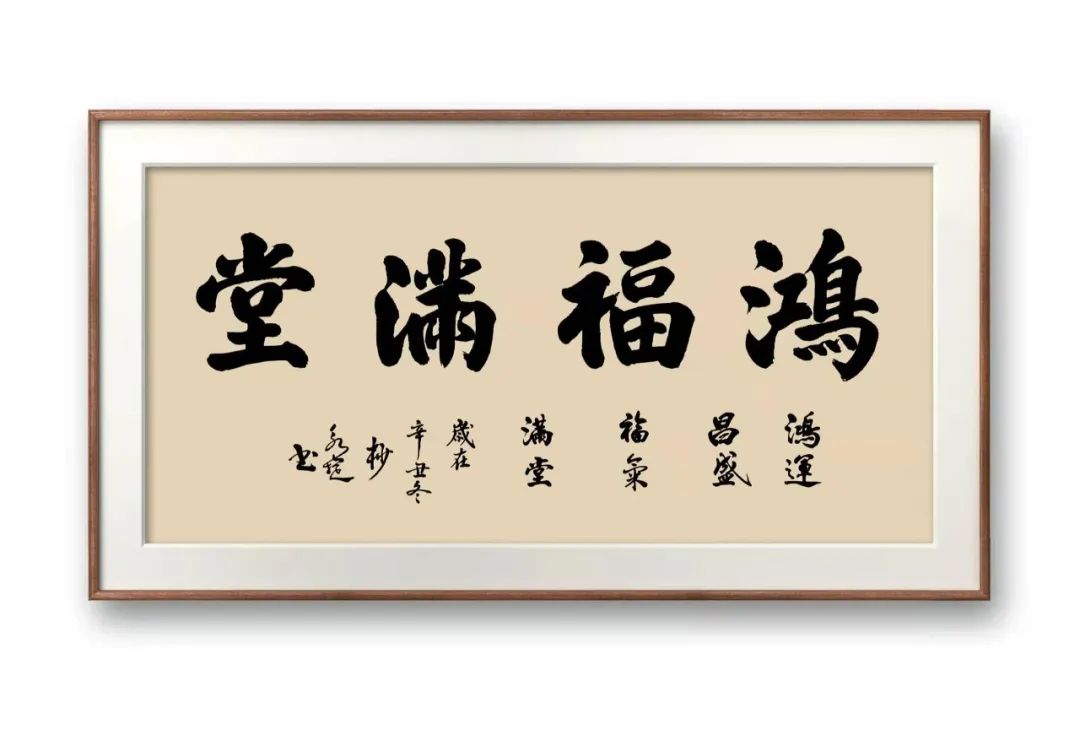 鴻福滿堂
鴻運
昌盛
福氣
滿堂
歲在
辛丑冬
杪
永
书